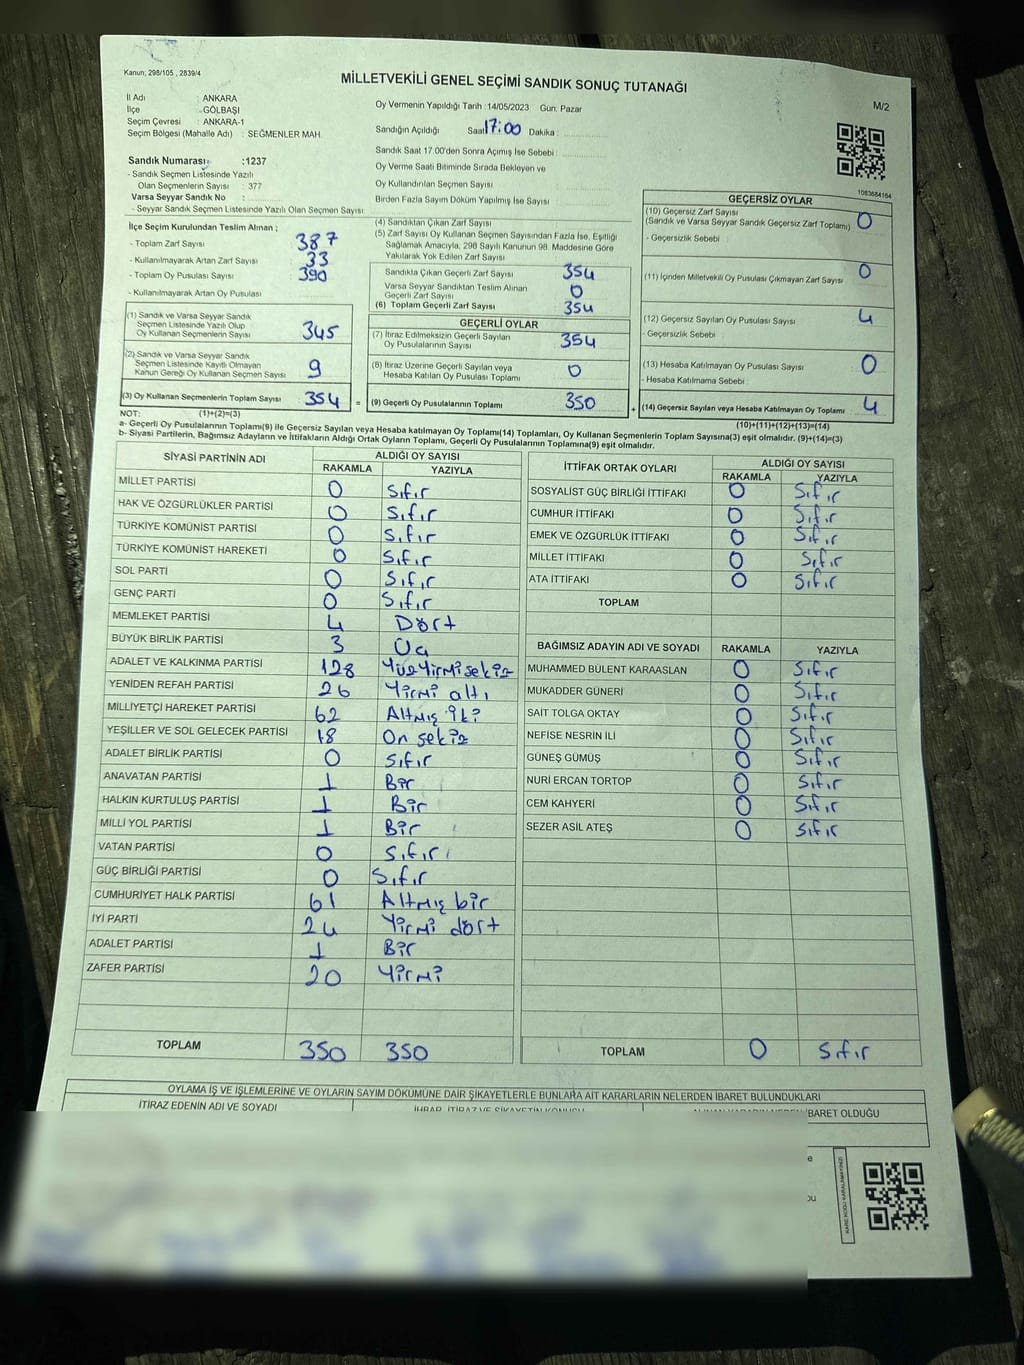 Kanun; 298/105 , 2839/4
MİLLETVEKİLİ GENEL SEÇİMİ SANDIK SONUÇ TUTANAĞI
M/2
İl Adı : ANKARA
İlçe : GÖLBAŞI
Seçim Çevresi : ANKARA-1
Seçim Bölgesi (Mahalle Adı) : SEĞMENLER MAH.
Sandık Numarası :1237
- Sandık Seçmen Listesinde Yazılı
Olan Seçmenlerin Sayısı : 377
Varsa Seyyar Sandık No :
- Seyyar Sandık Seçmen Listesinde Yazılı Olan Seçmen Sayısı
Oy Vermenin Yapıldığı Tarih :14/05/2023 Gün: Pazar
Sandığın Açıldığı Saat 17:00 Dakika :
Sandık Saat 17:00'den Sonra Açılmış İse Sebebi :
Oy Verme Saati Bitiminde Sırada Bekleyen ve
Oy Kullandırılan Seçmen Sayısı
Birden Fazla Sayım Döküm Yapılmış İse Sayısı :
1083684164
İlçe Seçim Kurulundan Teslim Alınan ;
- Toplam Zarf Sayısı 387
- Kullanılmayarak Artan Zarf Sayısı : 33
- Toplam Oy Pusulası Sayısı : 390
- Kullanılmayarak Artan Oy Pusulası :
(1) Sandık ve Varsa Seyyar Sandık
Seçmen Listesinde Yazılı Olup
Oy Kullanan Seçmenlerin Sayısı 345
(2) Sandık ve Varsa Seyyar Sandık
Seçmen Listesinde Kayıtlı Olmayan
Kanun Gereği Oy Kullanan Seçmen Sayısı 9
(3) Oy Kullanan Seçmenlerin Toplam Sayısı 354 =
(4) Sandıktan Çıkan Zarf Sayısı
(5) Zarf Sayısı Oy Kullanan Seçmen Sayısından Fazla İse, Eşitliği
Sağlamak Amacıyla, 298 Sayılı Kanunun 98. Maddesine Göre
Yakılarak Yok Edilen Zarf Sayısı
Sandıkta Çıkan Geçerli Zarf Sayısı 354
Varsa Seyyar Sandıktan Teslim Alınan
Geçerli Zarf Sayısı 0
(6) Toplam Geçerli Zarf Sayısı 354
GEÇERLİ OYLAR
(7) İtiraz Edilmeksizin Geçerli Sayılan
Oy Pusulalarının Sayısı 354
(8) İtiraz Üzerine Geçerli Sayılan veya
Hesaba Katılan Oy Pusulası Toplamı 0
(9) Geçerli Oy Pusulalarının Toplamı 350 +
GEÇERSİZ OYLAR
(10) Geçersiz Zarf Sayısı
(Sandık ve Varsa Seyyar Sandık Geçersiz Zarf Toplamı) 0
- Geçersizlik Sebebi :
(11) İçinden Milletvekili Oy Pusulası Çıkmayan Zarf Sayısı 0
(12) Geçersiz Sayılan Oy Pusulası Sayısı 4
- Geçersizlik Sebebi :
(13) Hesaba Katılmayan Oy Pusulası Sayısı 0
- Hesaba Katılmama Sebebi :
(14) Geçersiz Sayılan veya Hesaba Katılmayan Oy Toplamı 4
NOT: (1)+(2)=(3)
(10)+(11)+(12)+(13)=(14)
a- Geçerli Oy Pusulalarının Toplamı(9) ile Geçersiz Sayılan veya Hesaba katılmayan Oy Toplamı(14) Toplamları, Oy Kullanan Seçmenlerin Toplam Sayısına(3) eşit olmalıdır. (9)+(14)=(3)
b- Siyasi Partilerin, Bağımsız Adayların ve İttifakların Aldığı Ortak Oyların Toplamı, Geçerli Oy Pusulalarının Toplamına(9) eşit olmalıdır.
SİYASİ PARTİNİN ADI ALDIĞI OY SAYISI
RAKAMLA YAZIYLA
MİLLET PARTİSİ 0 Sıfır
HAK VE ÖZGÜRLÜKLER PARTİSİ 0 Sıfır
TÜRKİYE KOMÜNİST PARTİSİ 0 Sıfır
TÜRKİYE KOMÜNİST HAREKETİ 0 Sıfır
SOL PARTİ 0 Sıfır
GENÇ PARTİ 0 Sıfır
MEMLEKET PARTİSİ 4 Dört
BÜYÜK BİRLİK PARTİSİ 3 Üç
ADALET VE KALKINMA PARTİSİ 128 Yüzyirmisekiz
YENİDEN REFAH PARTİSİ 26 Yirmi altı
MİLLİYETÇİ HAREKET PARTİSİ 62 Altmış iki
YEŞİLLER VE SOL GELECEK PARTİSİ 18 On sekiz
ADALET BİRLİK PARTİSİ 0 Sıfır
ANAVATAN PARTİSİ 1 Bir
HALKIN KURTULUŞ PARTİSİ 1 Bir
MİLLİ YOL PARTİSİ 1 Bir
VATAN PARTİSİ 0 Sıfır
GÜÇ BİRLİĞİ PARTİSİ 0 Sıfır
CUMHURİYET HALK PARTİSİ 61 Altmış bir
İYİ PARTİ 24 Yirmi dört
ADALET PARTİSİ 1 Bir
ZAFER PARTİSİ 20 Yirmi
TOPLAM 350 350
İTTİFAK ORTAK OYLARI ALDIĞI OY SAYISI
RAKAMLA YAZIYLA
SOSYALİST GÜÇ BİRLİĞİ İTTİFAKI 0 Sıfır
CUMHUR İTTİFAKI 0 Sıfır
EMEK VE ÖZGÜRLÜK İTTİFAKI 0 Sıfır
MİLLET İTTİFAKI 0 Sıfır
ATA İTTİFAKI 0 Sıfır
TOPLAM
BAĞIMSIZ ADAYIN ADI VE SOYADI RAKAMLA YAZIYLA
MUHAMMED BÜLENT KARAASLAN 0 Sıfır
MUKADDER GÜNERİ 0 Sıfır
SAİT TOLGA OKTAY 0 Sıfır
NEFİSE NESRİN İLİ 0 Sıfır
GÜNEŞ GÜMÜŞ 0 Sıfır
NURİ ERCAN TORTOP 0 Sıfır
CEM KAHYERİ 0 Sıfır
SEZER ASİL ATEŞ 0 Sıfır
TOPLAM 0 Sıfır
OYLAMA İŞ VE İŞLEMLERİNE VE OYLARIN SAYIM DÖKÜMÜNE DAİR ŞİKAYETLERLE BUNLARA AİT KARARLARIN NELERDEN İBARET BULUNDUKLARI
İTİRAZ EDENİN ADI VE SOYADI İHBAR, İTİRAZ VE ŞİKAYETİN KONUSU ALINAN KARARIN NEDEN İBARET OLDUĞU